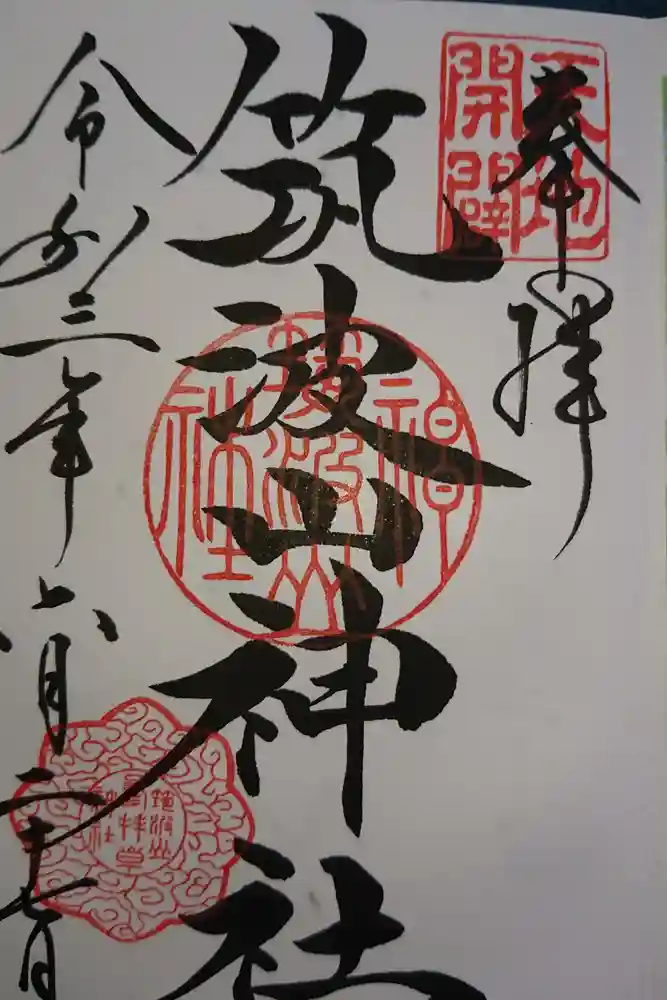 天地
開闢
奉拝
筑波山神社
令和三年六月二十七日
筑波山
神社